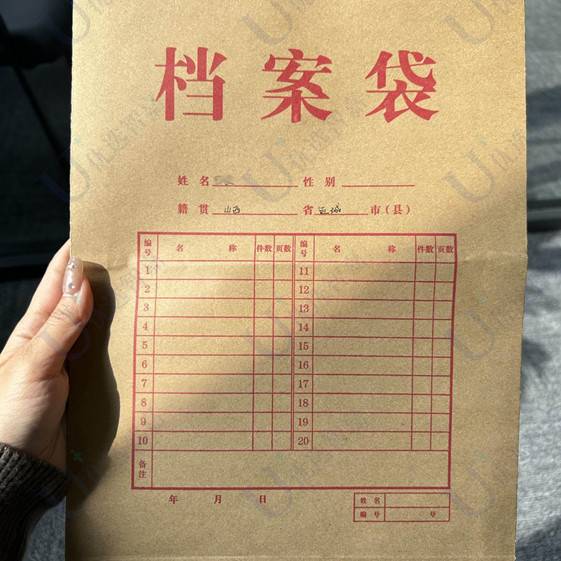 档案袋
姓名 性别
籍贯 山西 省 运城 市(县)
编号 名称 件数 页数 编号 名称 件数 页数
1 11
2 12
3 13
4 14
5 15
6 16
7 17
8 18
9 19
10 20
备注
年 月 日
姓名
编号 号